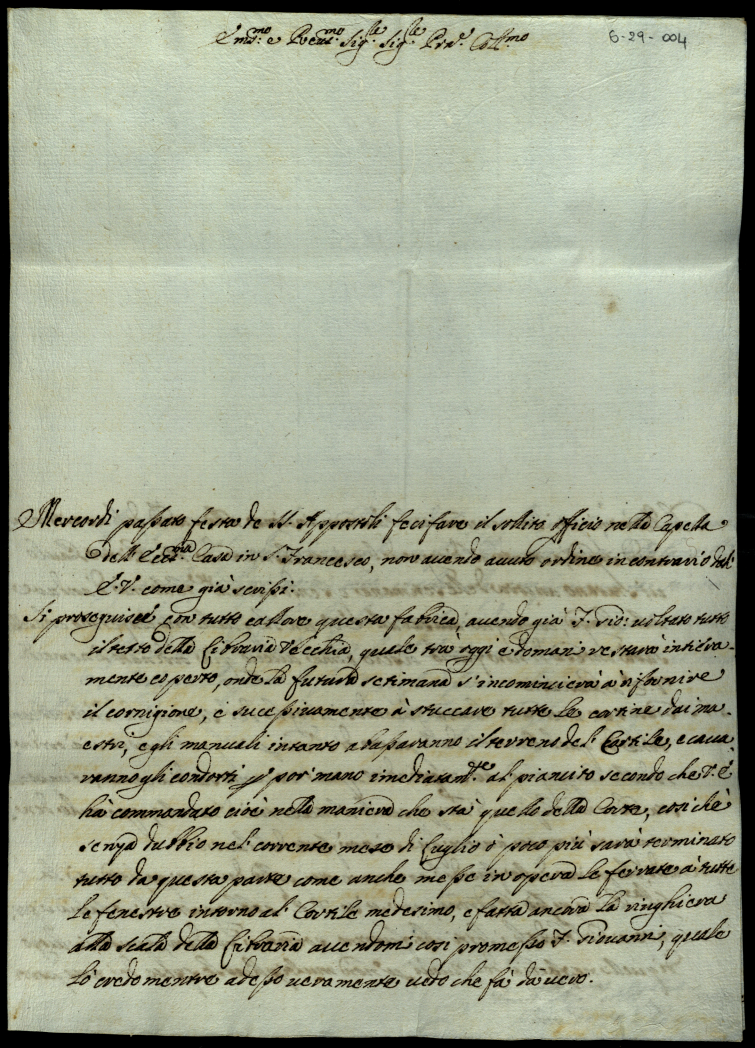 Em.mo e Reu.mo Sig.re Sig.re Pron.e Coll.mo
6-29-004
Mercordi passato festa de SS. Appostoli feci fare il sollito officio nella Capella
dell' Ecc.ma Casa in S. Francesco, non auendo auuto ordine in contrario dall'
E. V. come già scrissi.
Si proseguisce con tutto callore questa fabrica, auendo già F. Gio: voltato tutto
il tetto della Libraria Vecchia, quale trà oggi e domani restarà intiera-
mente coperto, onde la futura settimana s'incomincierà à rifornire
il cornigione, e sucessiuamente à stuccare tutte le cortine dai ma-
estri, e gli manuali intanto abassaranno il terreno del Cortile, e caua-
ranno gli condotti p por' mano imediatam.te al pianuito secondo che V. E.
hà commandato cioè nella maniera che stà quello della Corte, cosi chè
senza dubbio nel corrente mese di Luglio ò poco più sarà terminato
tutto da questa parte come anche messe in opera le ferrate à tutte
le fenestre intorno al Cortile medesimo, e fatta ancora la ringhiera
alla scala della Libraria auendomi cosi promesso F. Giovanni, quale
lo credo mentre adesso ueramente uedo che fà dà uero.